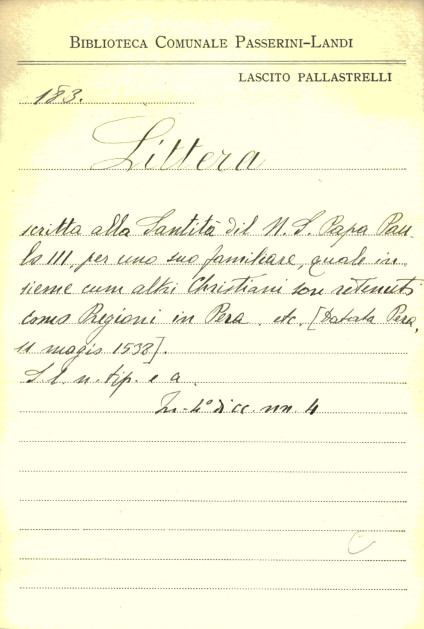 BIBLIOTECA COMUNALE PASSERINI-LANDI
LASCITO PALLASTRELLI
183.
Littera
scritta alla Santità dil N. S. Papa Pau-
lo III, per uno suo familiare, quale in-
sieme cum altri Christiani son retenuti
como Pregioni in Pera. etc. [Datata Pera,
11 magio 1538].
S. l. n. tip. e a.
In-4° di cc. nn. 4